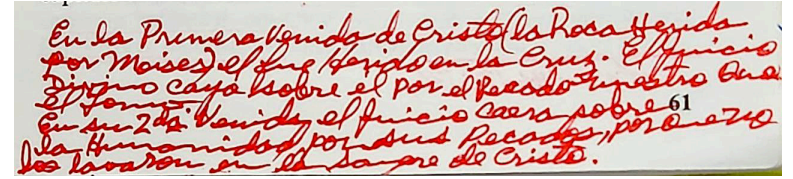 En la Primera Venida de Cristo (la Roca Herida
por Moises) el fue Herido en la Cruz. El Juicio
Divino cayo sobre el por el Pecado nuestro que
el tomo.
En su 2da Venida, el Juicio caera sobre 61
la Humanidad, por sus Pecados, porque no
los lavaron en la sangre de Cristo.